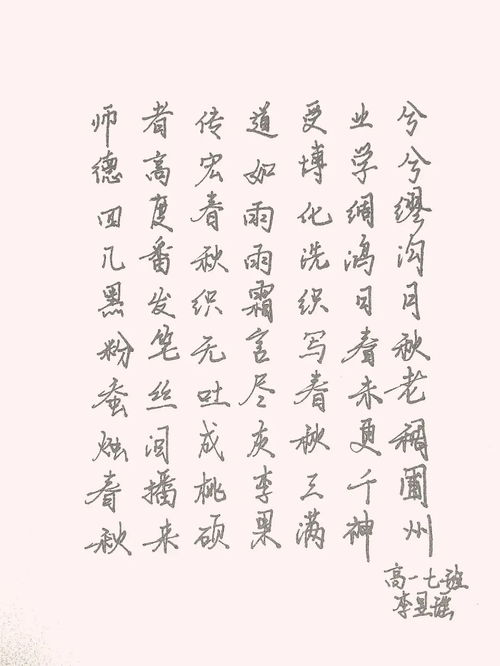 师者传道受业兮
德高宏如博学兮
四度春雨化绸缪
几番秋雨洗鸿沟
黑发织霜织日月
粉笔无言写春秋
蚕丝吐尽春未老
烛泪成灰秋更稠
春播桃李三千圃
秋来硕果满神州
高一七班
李昱瑶